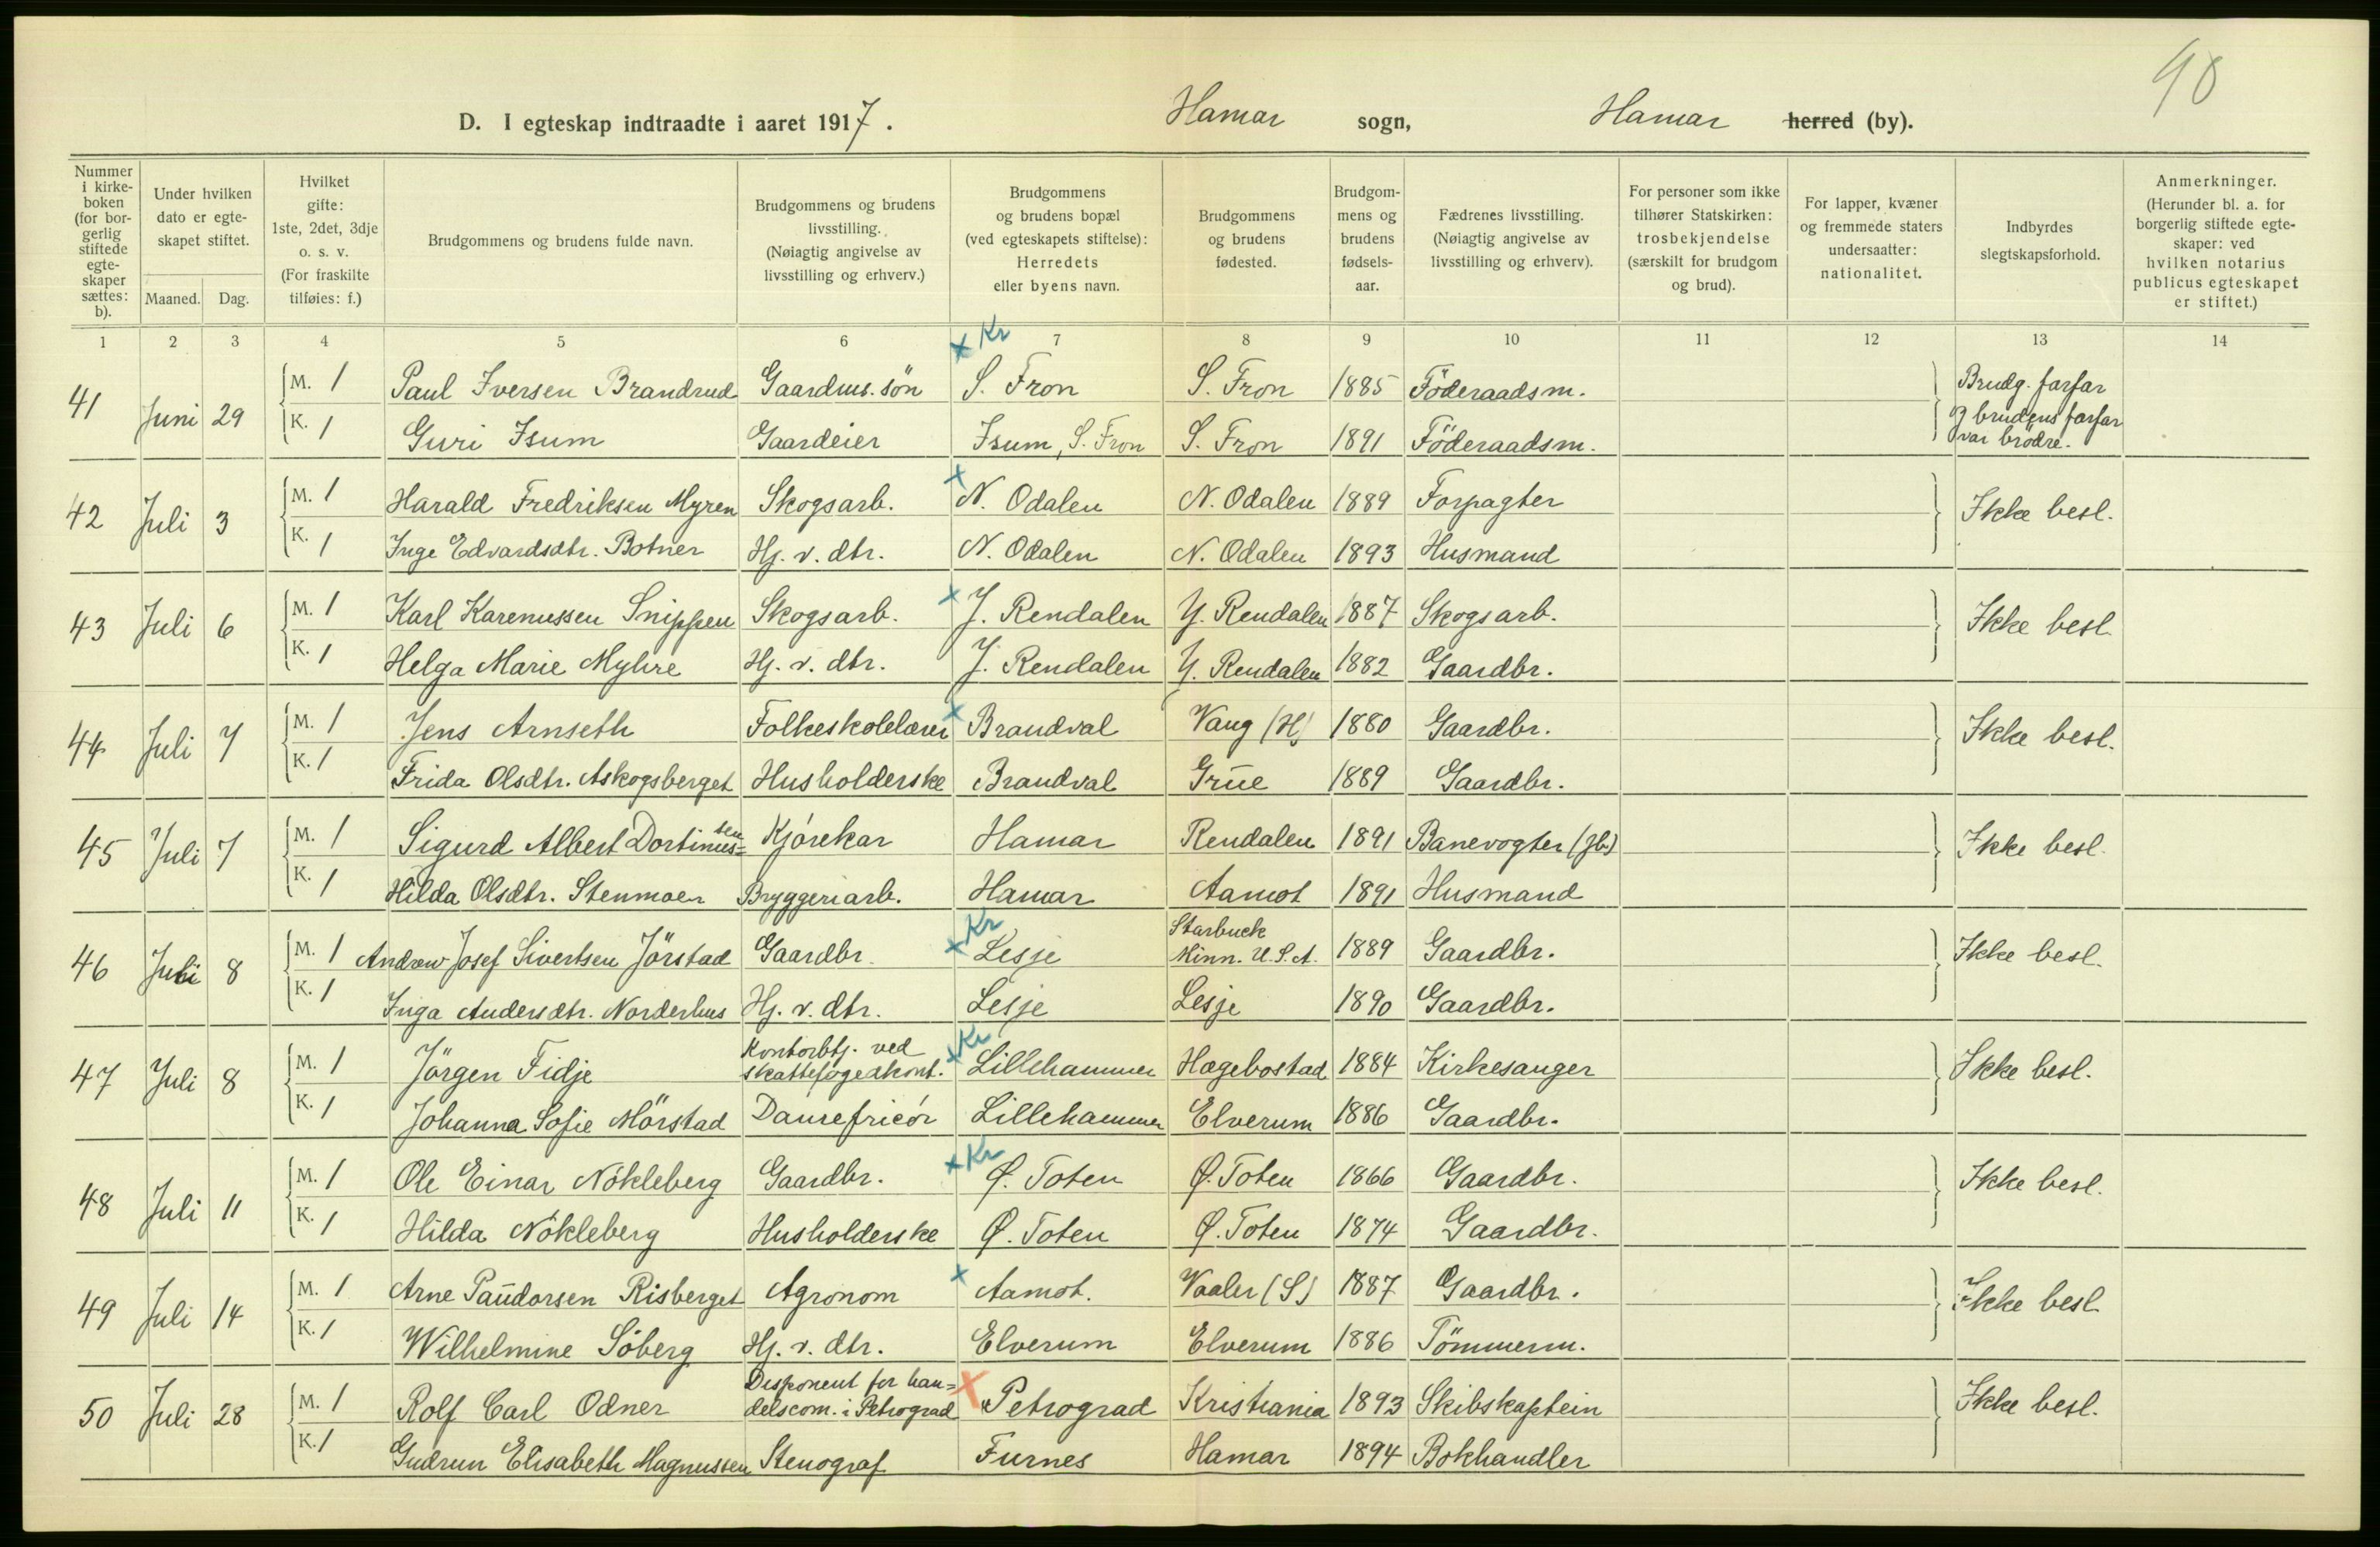 90
D. I egteskap indtraadte i aaret 1917. Hamar sogn, Hamar herred (by).
Nummer i kirkeboken (for borgerlig stiftede egteskaper sættes: b).
Under hvilken dato er egteskapet stiftet.
Maaned. Dag.
Hvilket gifte: 1ste, 2det, 3dje o. s. v. (For fraskilte tilføies: f.)
Brudgommens og brudens fulde navn.
Brudgommens og brudens livsstilling. (Nøiagtig angivelse av livsstilling og erhverv.)
Brudgommens og brudens bopæl (ved egteskapets stiftelse): Herredets eller byens navn.
Brudgommens og brudens fødested.
Brudgommens og brudens fødselsaar.
Fædrenes livsstilling. (Nøiagtig angivelse av livsstilling og erhverv).
For personer som ikke tilhører Statskirken: trosbekjendelse (særskilt for brudgom og brud).
For lapper, kvæner og fremmede staters undersaatter: nationalitet.
Indbyrdes slegtskapsforhold.
Anmerkninger. (Herunder bl. a. for borgerlig stiftede egteskaper: ved hvilken notarius publicus egteskapet er stiftet.)
1 2 3 4 5 6 7 8 9 10 11 12 13 14
41 Juni 29 M. 1 Paul Iversen Brandrud Gaardms. sön x Kr S. Fron S. Fron 1885 Föderaadsm. Brudg. farfar og brudens farfar var brödre.
K. 1 Guri Isum Gaardeier Isum, S. Fron S. Fron 1891 Föderaadsm.
42 Juli 3 M. 1 Harald Fredriksen Myren Skogsarb. x N. Odalen N. Odalen 1889 Forpagter Ikke besl.
K. 1 Inge Edvardsdtr. Botner Hj. v. dtr. N. Odalen N. Odalen 1893 Husmand
43 Juli 6 M. 1 Karl Karenussen Snippen Skogsarb. x Y. Rendalen Y. Rendalen 1887 Skogsarb. Ikke besl.
K. 1 Helga Marie Myhre Hj. v. dtr. Y. Rendalen Y. Rendalen 1882 Gaardbr.
44 Juli 7 M. 1 Jens Arnseth Folkeskolelærer x Brandval Vang (H) 1880 Gaardbr. Ikke besl.
K. 1 Frida Olsdtr. Askogsberget Husholderske Brandval Grue 1889 Gaardbr.
45 Juli 7 M. 1 Sigurd Albert Dortinussen Kjörekar Hamar Rendalen 1891 Banevogter (Jb) Ikke besl.
K. 1 Hilda Olsdtr. Stenmoen Bryggeriarb. Hamar Aamot 1891 Husmand
46 Juli 8 M. 1 Andrew Josef Sivertsen Jörstad Gaardbr. x Kr Lesje Starbuck Minn. U.S.A. 1889 Gaardbr. Ikke besl.
K. 1 Inga Andersdtr. Norderhus Hj. v. dtr. Lesje Lesje 1890 Gaardbr.
47 Juli 8 M. 1 Jörgen Fidje Kontorbtj. ved skattefogedkont. x Kr Lillehammer Hægebostad 1884 Kirkesanger Ikke besl.
K. 1 Johanna Sofie Mörstad Damefrisör Lillehammer Elverum 1886 Gaardbr.
48 Juli 11 M. 1 Ole Einar Nökleberg Gaardbr. x Kr Ø. Toten Ø. Toten 1866 Gaardbr. Ikke besl.
K. 1 Hilda Nökleberg Husholderske Ø. Toten Ø. Toten 1874 Gaardbr.
49 Juli 14 M. 1 Arne Paudorsen Risberget Agronom x Aamot. Vaaler (S) 1887 Gaardbr. Ikke besl.
K. 1 Wilhelmine Söberg Hj. v. dtr. Elverum Elverum 1886 Tömmerm.
50 Juli 28 M. 1 Rolf Carl Odner Disponent for handelscom. i Petrograd x Petrograd Kristiania 1893 Skibskaptein Ikke besl.
K. 1 Gudrun Elisabeth Magnussen Stenograf Furnes Hamar 1894 Bokhandler